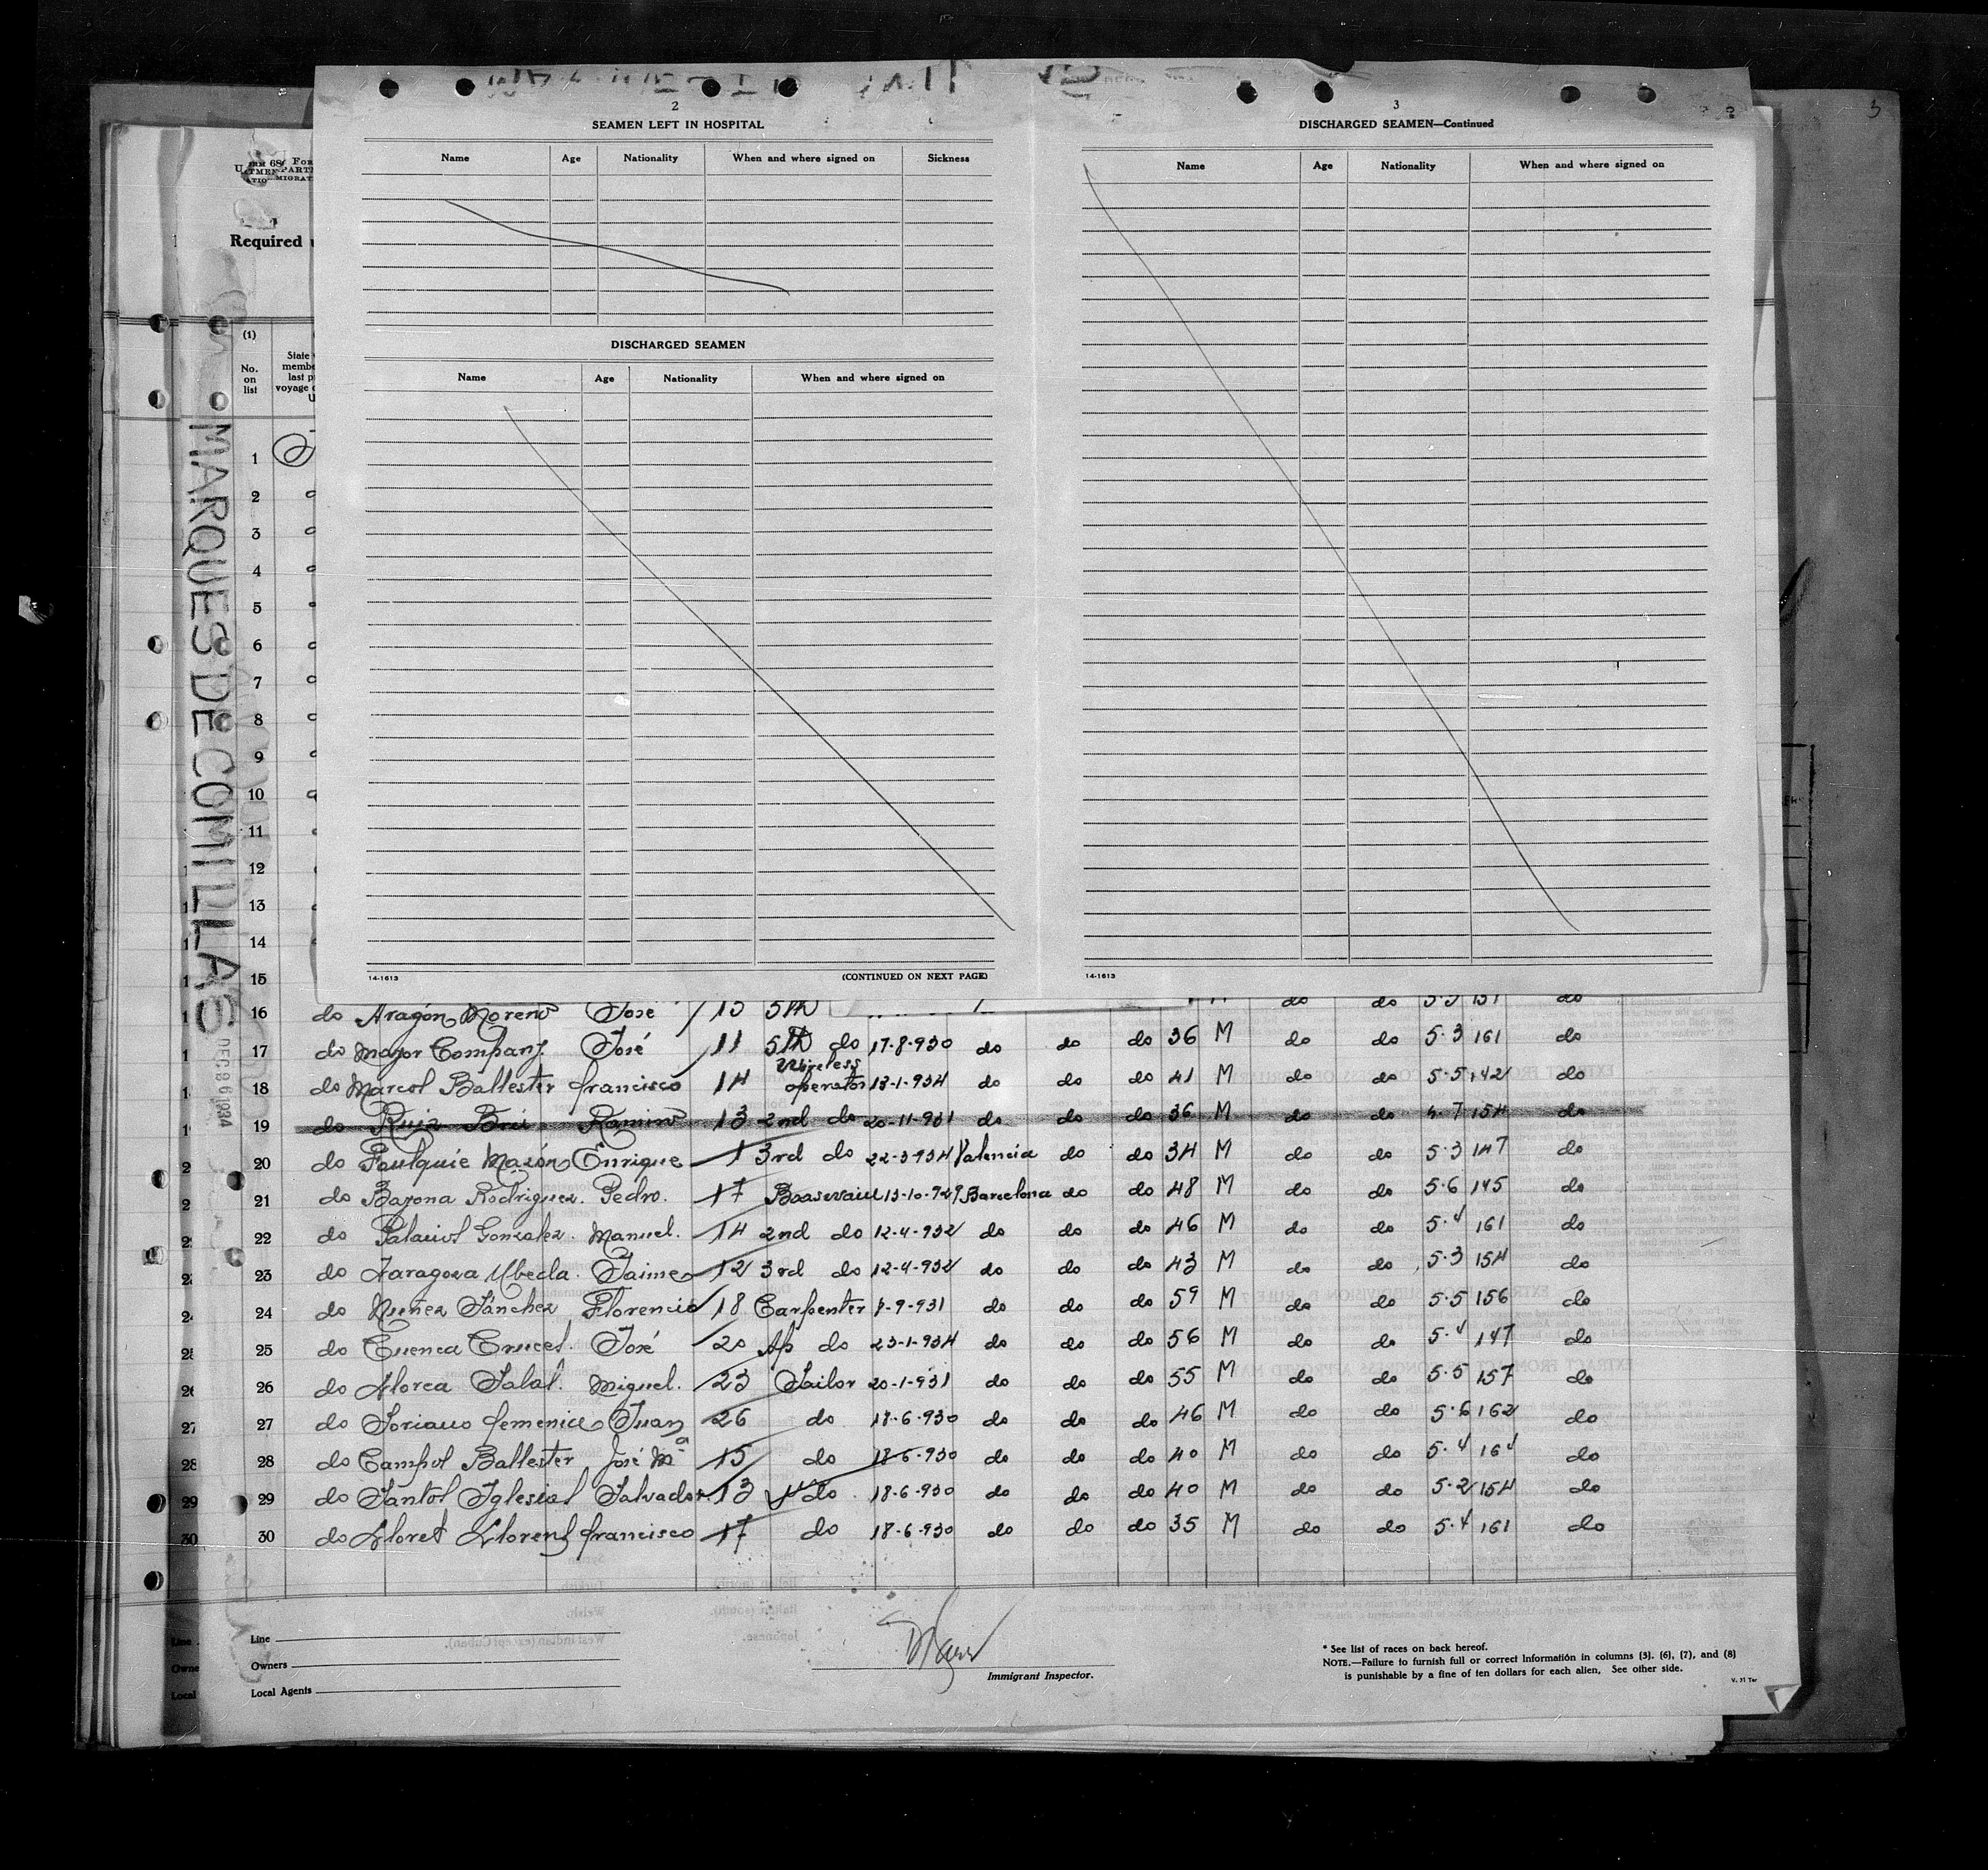 2
SEAMEN LEFT IN HOSPITAL
Name Age Nationality When and where signed on Sickness
DISCHARGED SEAMEN
Name Age Nationality When and where signed on
14-1613 (CONTINUED ON NEXT PAGE)
3
DISCHARGED SEAMEN—Continued
Name Age Nationality When and where signed on
14-1613
5
Required
(1)
No. on list
State
last
voyage
MARQUES DE COMILLAS
DEC 26 1934
1
2
3
4
5
6
7
8
9
10
11
12
13
14
15
16 do Aragón Moreno José 15 5th do do 5.5 151 do
17 do Mayor Company José 11 5th do 17-8-930 do do do 36 M do do 5.3 161 do
18 do Marcol Ballester francisco 14 Wireless operator 13-1-934 do do do 41 M do do 5.5 142 do
19 do Ruiz Bri Ramiro 13 2nd do 20-11-931 do do do 36 M do do 5.7 154 do
20 do Foulquie Mazón Enrique 1 3rd do 22-3-934 Valencia do do 34 M do do 5.3 147 do
21 do Bazona Rodriguez. Pedro. 17 13-10-929 Barcelona do do 48 M do do 5.6 145 do
22 do Palaciol Gonzalez. Manuel. 14 2nd do 12-4-932 do do do 46 M do do 5.4 161 do
23 do Zaragoza Ubeda. Jaime 12 3rd do 12-4-932 do do do 43 M do do 5.3 154 do
24 do Nuñez Sánchez Florencio 18 Carpenter 7-9-931 do do do 59 M do do 5.5 156 do
25 do Cuenca Crucel. José 20 Ap do 23-1-934 do do do 56 M do do 5.4 147 do
26 do Llorca Salal. Miguel. 23 Sailor 20-1-931 do do do 55 M do do 5.5 157 do
27 do Soriano femenia Juan 26 do 18-6-930 do do do 46 M do do 5.6 162 do
28 do Campol Ballester José Mª 15 do 18-6-930 do do do 40 M do do 5.4 164 do
29 do Santol Iglesial Salvador. 13 do 18-6-930 do do do 40 M do do 5.2 154 do
30 do Lloret Llorens francisco 17 do 18-6-930 do do do 35 M do do 5.4 161 do
Line
Owners
Local Agents
Immigrant Inspector.
* See list of races on back hereof.
NOTE.—Failure to furnish full or correct information in columns (3), (6), (7), and (8)
is punishable by a fine of ten dollars for each alien. See other side.